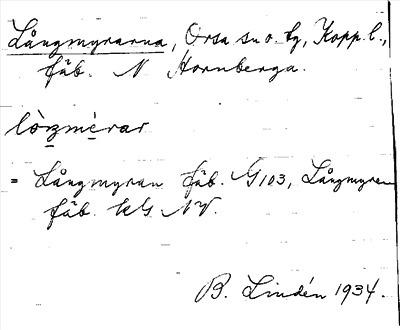 Långmyrarna, Orsa sn o. tg, Kopp. l.,
fäb. N Hornberga.
lòŋmỳrar
= Långmyran fäb. G103, Långmyren
fäb. kG NV.
B. Lindén 1934.